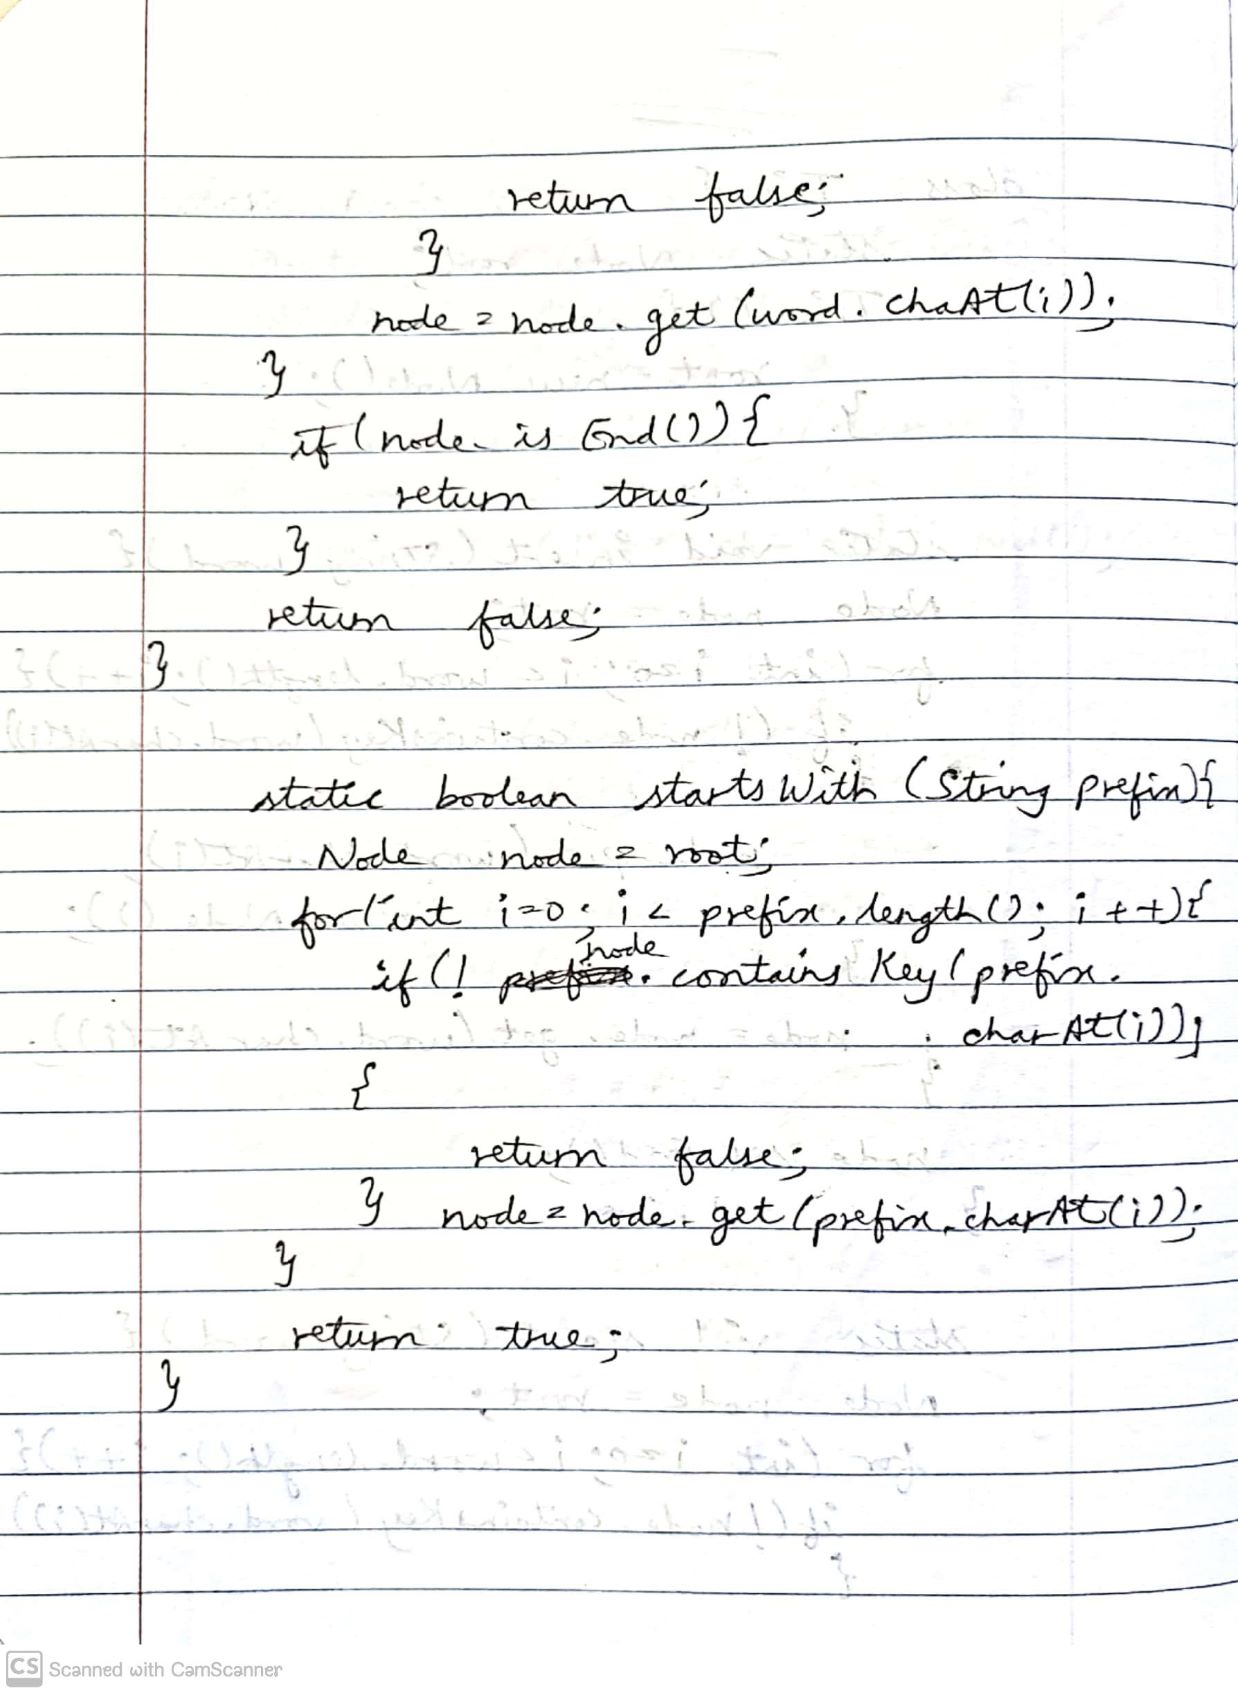 return false;
}
node = node.get (word. chaAt(i));
}
if (node. is End()) {
return true;
}
return false;
}
static boolean starts With (String prefix){
Node node = root;
for(int i=0; i < prefix.length(); i++){
node
if (! prefix. contains Key (prefix.
charAt(i)))
{
return false;
} node = node. get (prefix.charAt(i));
}
return true;
}
CS Scanned with CamScanner